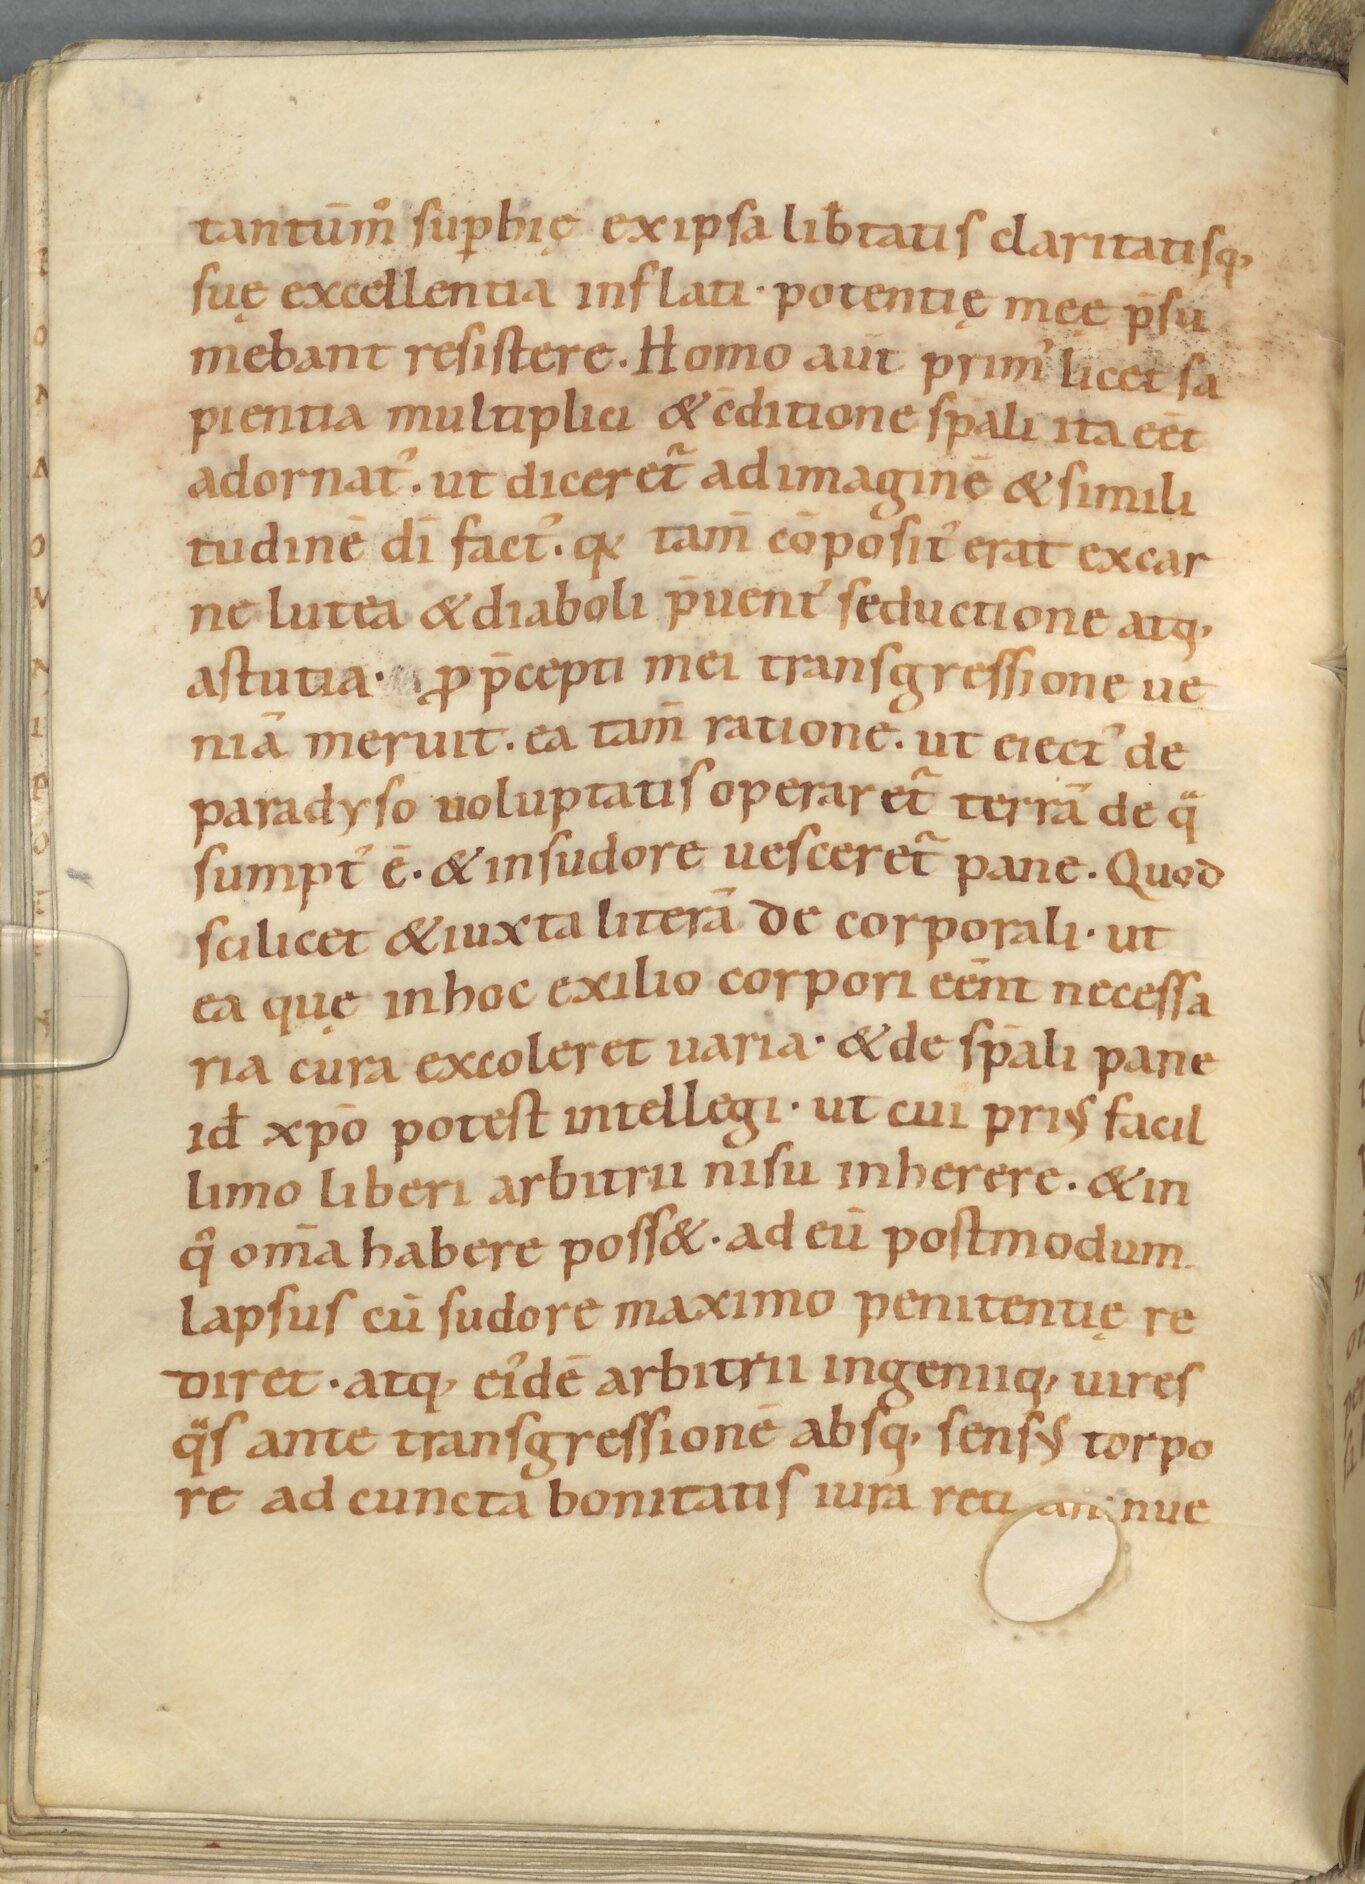 tantūm̊ sup̱bię ex ipsa lib̄tatis claritatisq,
suę excellentia inflati · potentię meę p̄su
mebant resistere . Homo aūt prim᾿ licet sa
pientia multiplici & c̄ditione sp̄ali ita eēt
adornat᾿ . ut diceret᷑ ad imaginē & simili
tudinē dī fact᾿ . q tam̄ cōposit᾿ erat ex car
ne lutea & diaboli p̄uent᾿ seductione atq,
astutia · ꝓ p̄cepti mei transgressione ue
niā meruit . ea tam̄ ratione . ut eiect᾿ de
paradyso uoluptatis operaret᷑ terrā de qᷓ
sumpt᾿ ē . & in sudore uesceret᷑ pane . Quod
scilicet & iuxta literā de corporali · ut
ea quę in hoc exilio corpori eēnt necessa
ria cura excoleret uaria · & de sp̄ali pane
id̄ xp̄o potest intellegi · ut cui prius facil
limo liberi arbitrii nisu inherere . & in
qͦ om̄a habere poss& . ad eū postmodum
lapsus cū sudore maximo penitentię re
diret . atq, ei᾿dē arbitrii ingeniiq, uires
qᷓs ante transgressionē absq, sensus torpo
re ad cuncta bonitatis iura reti nue